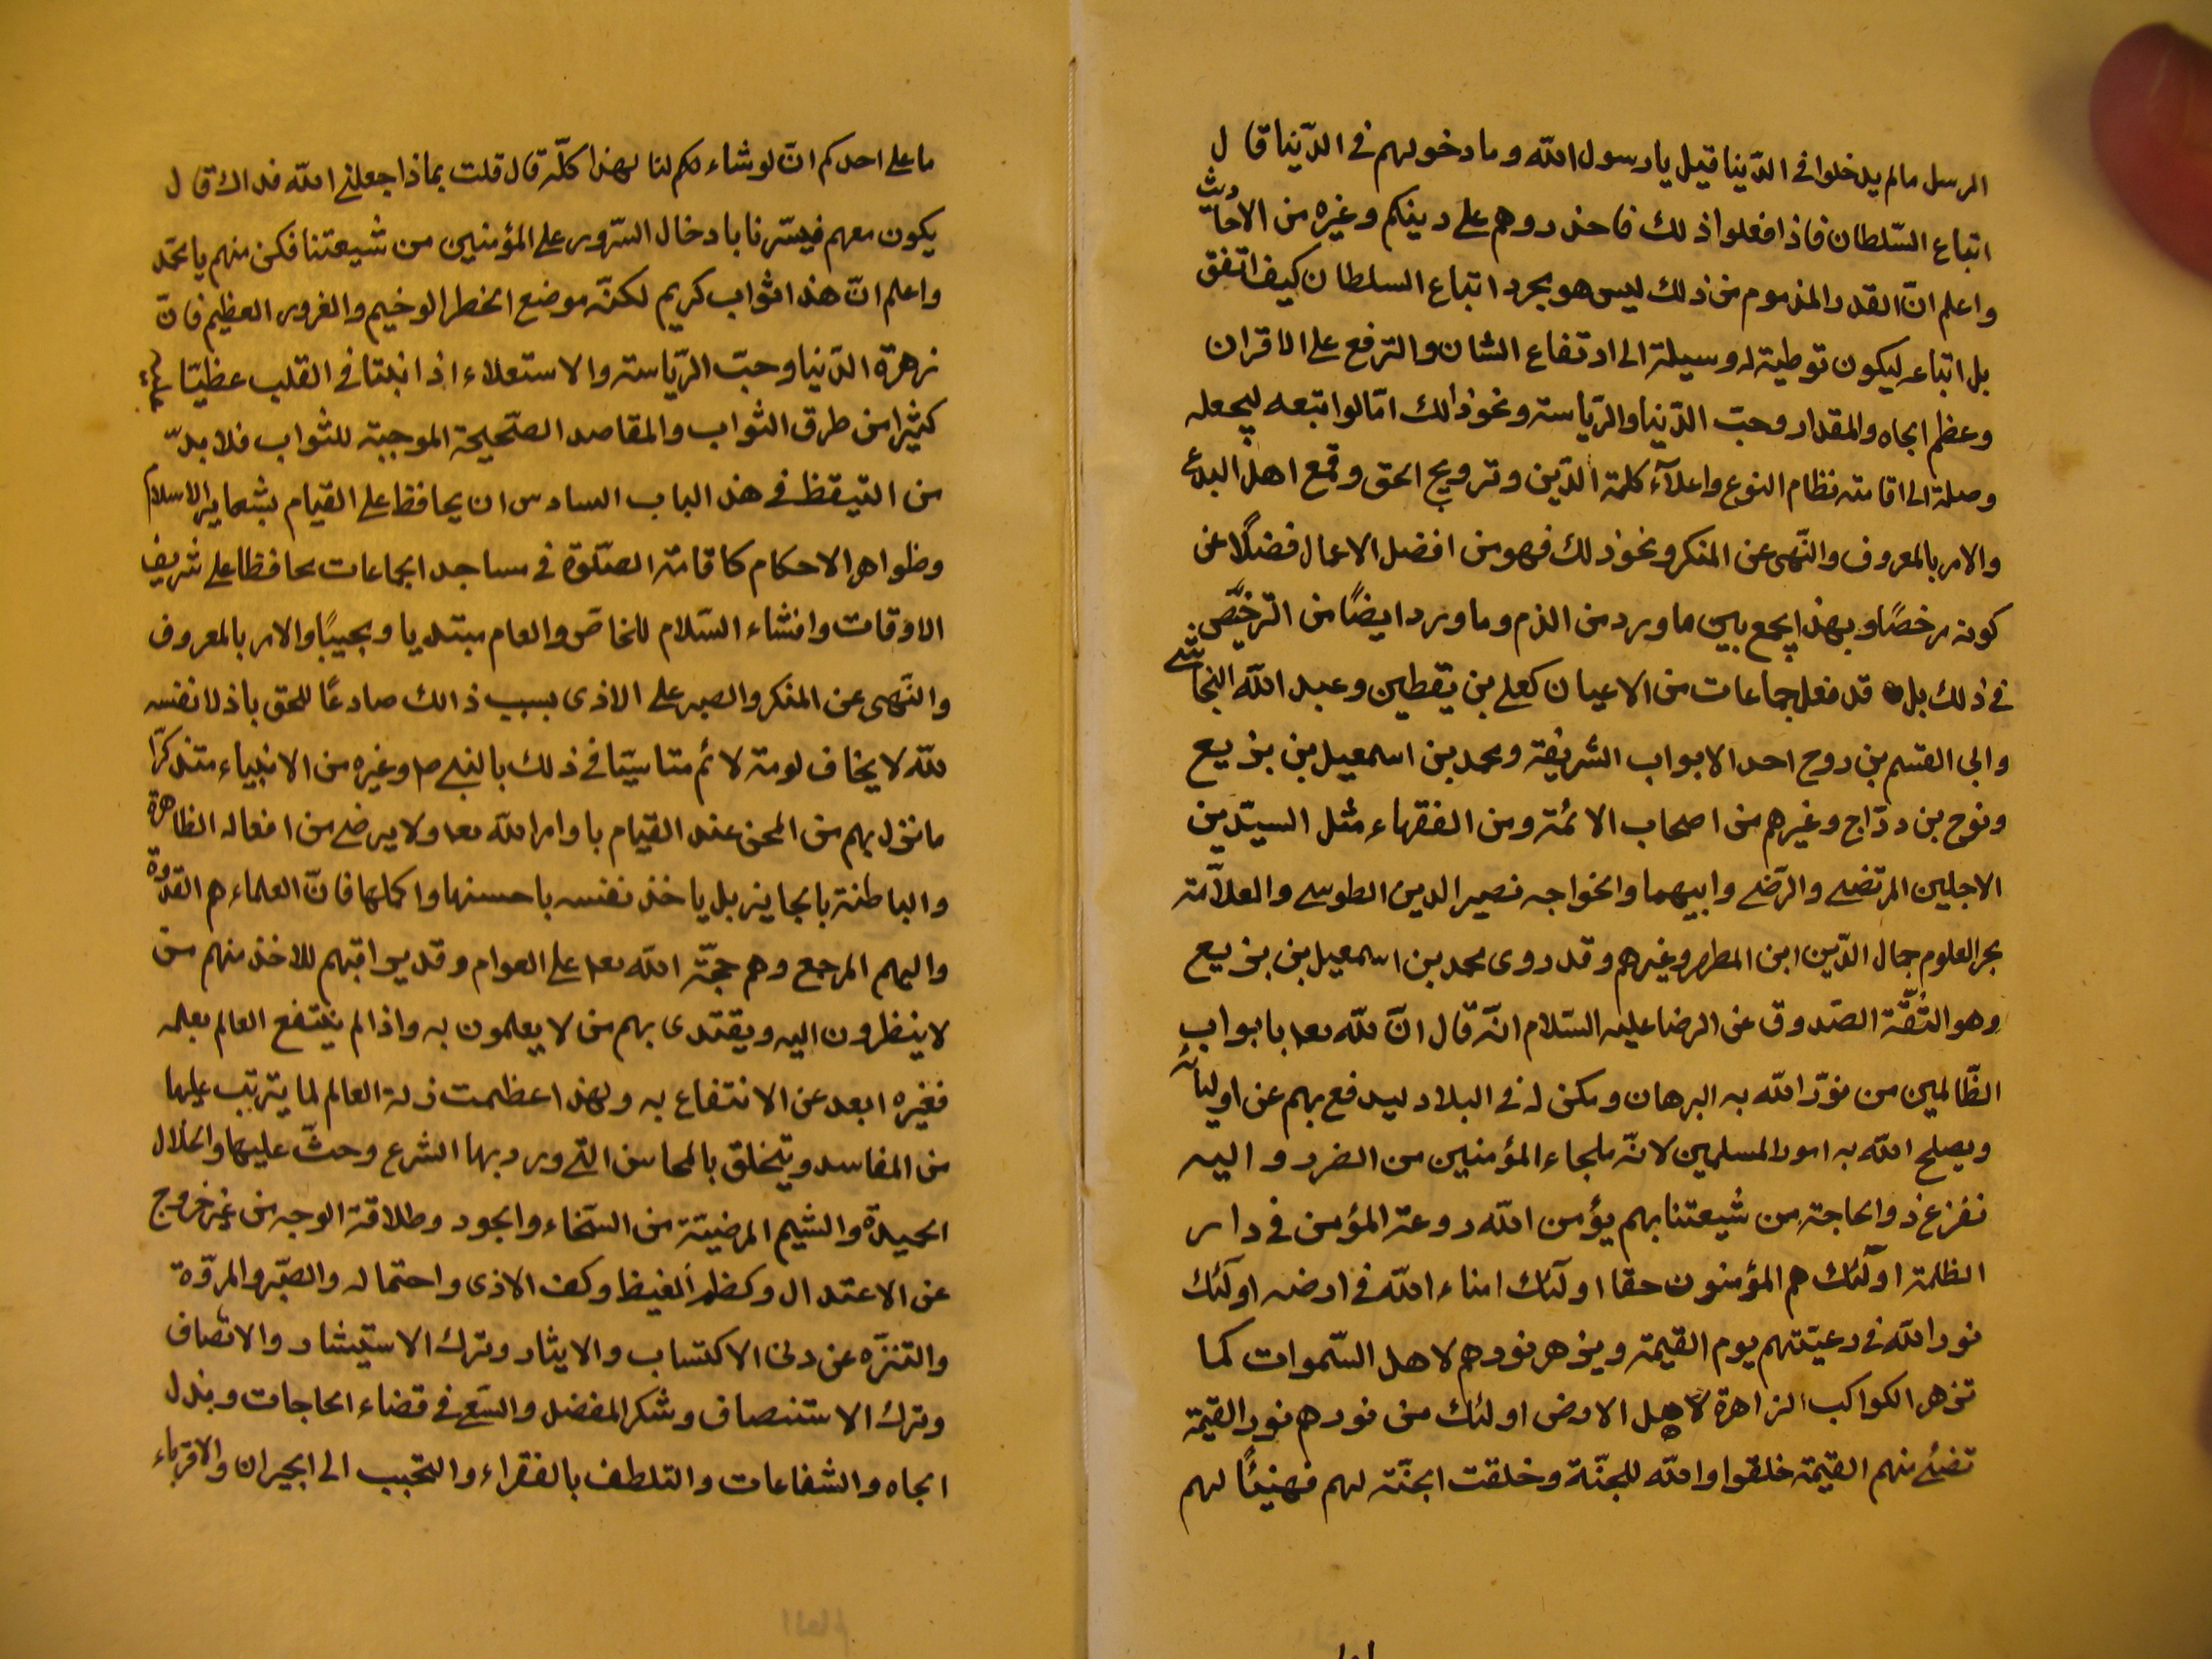 الرسل مالم يدخلوا فى الدّنيا قيل يا رسول الله وما دخولهم فى الدّنيا قال
اتباع السّلطان فاذا فعلوا ذلك فاحذروهم على دينكم وغيره من الاحاديث
واعلم انّ القدر المذموم من ذلك ليس هو مجرد اتباع السلطان كيف اتفق
بل اتباعه ليكون توطية له وسيلة الى ارتفاع الشان والترفع على الاقران
وعظم الجاه والمقدار وحبّ الدّنيا والرّياسة ونحو ذالك امّا لو اتبعه ليجعله
وصلة الى اقامة نظام النوع واعلآء كلمة الدّين وترويج الحق وقمع اهل البدع
والامر بالمعروف والنّهى عن المنكر ونحو ذلك فهو من افضل الاعمال فضلًا عن
كونه مرخصًا وبهذا يجمع بين ما ورد من الذم وما ورد ايضًا من الترخّص
فى ذلك بل قد فعله جماعات من الاعيان كعلى بن يقطين وعبد الله النجاشى
وابى القسم بن روح احد الابواب الشريفة ومحمد بن اسمعيل بن بزيع
ونوح بن درّاج وغيرهم من اصحاب الائمة ومن الفقهاء مثل السيّدين
الاجلين المرتضى والرّضى وابيهما والخواجه نصير الدين الطوسى والعلاّمة
بحر العلوم جمال الدّين ابن المطهر وغيرهم وقد روى محمد بن اسمعيل بن بزيع
وهو الثّقة الصّدوق عن الرضا عليه السّلام انّه قال انّ لله تعا بابواب
الظّالمين من نوّر الله به البرهان ومكن له فى البلاد ليدفع بهم عن اوليائه
ويصلح الله به امور المسلمين لانّه ملجاء المؤمنين من الضرر واليه
نفزع ذوالحاجة من شيعتنا بهم يؤمن الله روعة المؤمن فى دار
الظلمة اولٓئك هم المؤمنون حقا اولٓئك امناء الله فى ارضه اولٓئك
نور الله فى رعيّتهم يوم القيمة ويزهر نورهم لاهل السّموات كما
تزهر الكواكب الزاهرة لاهل الارض اولئك من نورهم نور القيمة
تضئ منهم القيمة خلقوا والله للجنّة وخلقت الجنّة لهم فهنيئًا لهم
ما على احدكم انّ لو شاء لكم لنا بهذا كلّه قال قلت بماذا جعلنى الله فداك قال
يكون معهم فيسّرنا بادخال السّرور على المؤمنين من شيعتنا فكن منهم يا محمّد
واعلم انّ هذا ثواب كريم لكنّه موضع الخطر الوخيم والغرور العظيم فانّ
زهرة الدّنيا وحبّ الرّياسة والاستعلاء اذا نبتا فى القلب غطّيا عليه
كثيرا من طرق الثّواب والمقاصد الصّحيحة الموجبة للثواب فلا بدّ
من التيقظ فى هذ الباب السادس ان يحافظ على القيام بشعاير الاسلام
وظواهر الاحكام كاقامة الصّلوة فى مساجد الجماعات محافظا على شريف
الاوقات وافشاء السّلام للخاصّ والعام مبتديا ومجيبًا والامر بالمعروف
والنّهى عن المنكر والصبر على الاذى بسبب ذالك صادعًا للحق باذلا نفسه
لله لا يخاف لومة لائم متاسيًا فى ذلك بالنبى ص وغيره من الانبياء متذكرًا
ما نزل بهم من المحن عند القيام باوامر الله تعا ولا يرضى من افعاله الظاهرة
والباطنة بالجايز بل ياخذ نفسه باحسنها واكملها فانّ العلماء هم القدوة
واليهم المرجع وهم حجّة الله تعا على العوام وقد يراقبهم للاخذ منهم من
لا ينظرون اليه ويقتدى بهم من لا يعلمون به واذا لم ينتفع العالم بعلمه
فغيره ابعد عن الانتفاع به ولهذا عظمت زلة العالم لما يترتب عليها
من المفاسد ويتخلق بالمحاسن التى ورد بها الشرع وحثّ عليها والخلال
الحميدة والشيم المرضيّة من السّخاء والجود وطلاقة الوجه من غير خروج
عن الاعتدال وكظم الغيظ وكف الاذى واحتماله والصّبر والمروّة
والتنزّه عن دنى الاكتساب والايثار وترك الاستيثار والانصاف
وترك الاستنصاف وشكر المفضل والسّعى فى قضاء الحاجات وبذل
الجاه والشفاعات والتلطف بالفقراء والتحبب الى الجيران والاقرباء